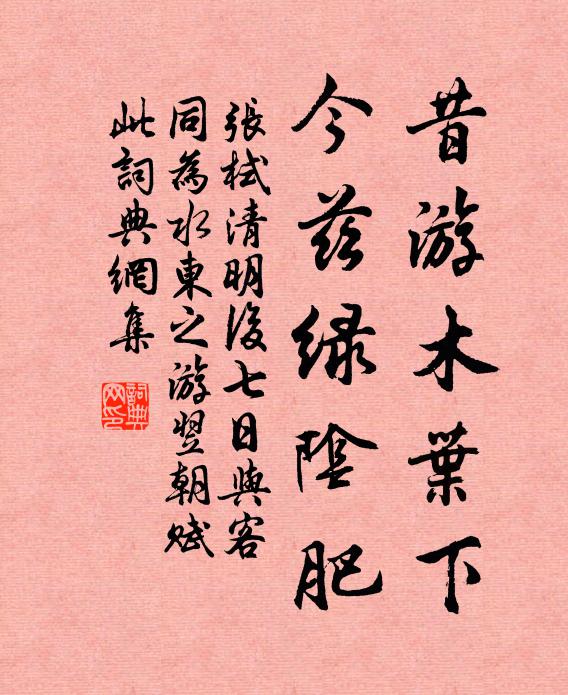 昔游木葉下
今茲緑陰肥
張栻清明後七日與客
同為水東之游翌朝賦
此詞典網集
詞典
网印